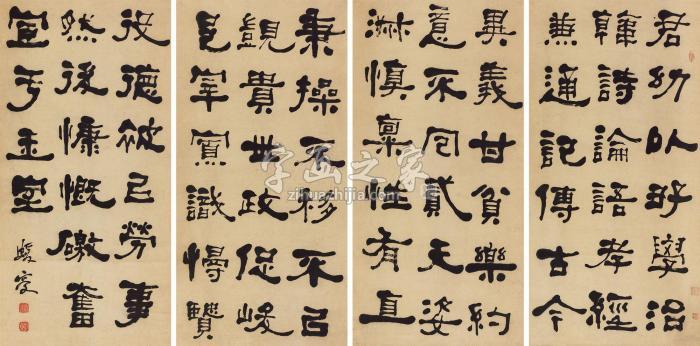 君幼以好學治
韓詩論語孝經
兼通記傳古今
異義甘貧樂約
意不回貳天姿
淋慎稟性有直
秉操不移不以
覬貴世政促峻
邑宰寡識慢賢
役德被已勞事
然後慷慨徼奮
宜乎王室
蝯叟
字画之家
zihuazhijia.com